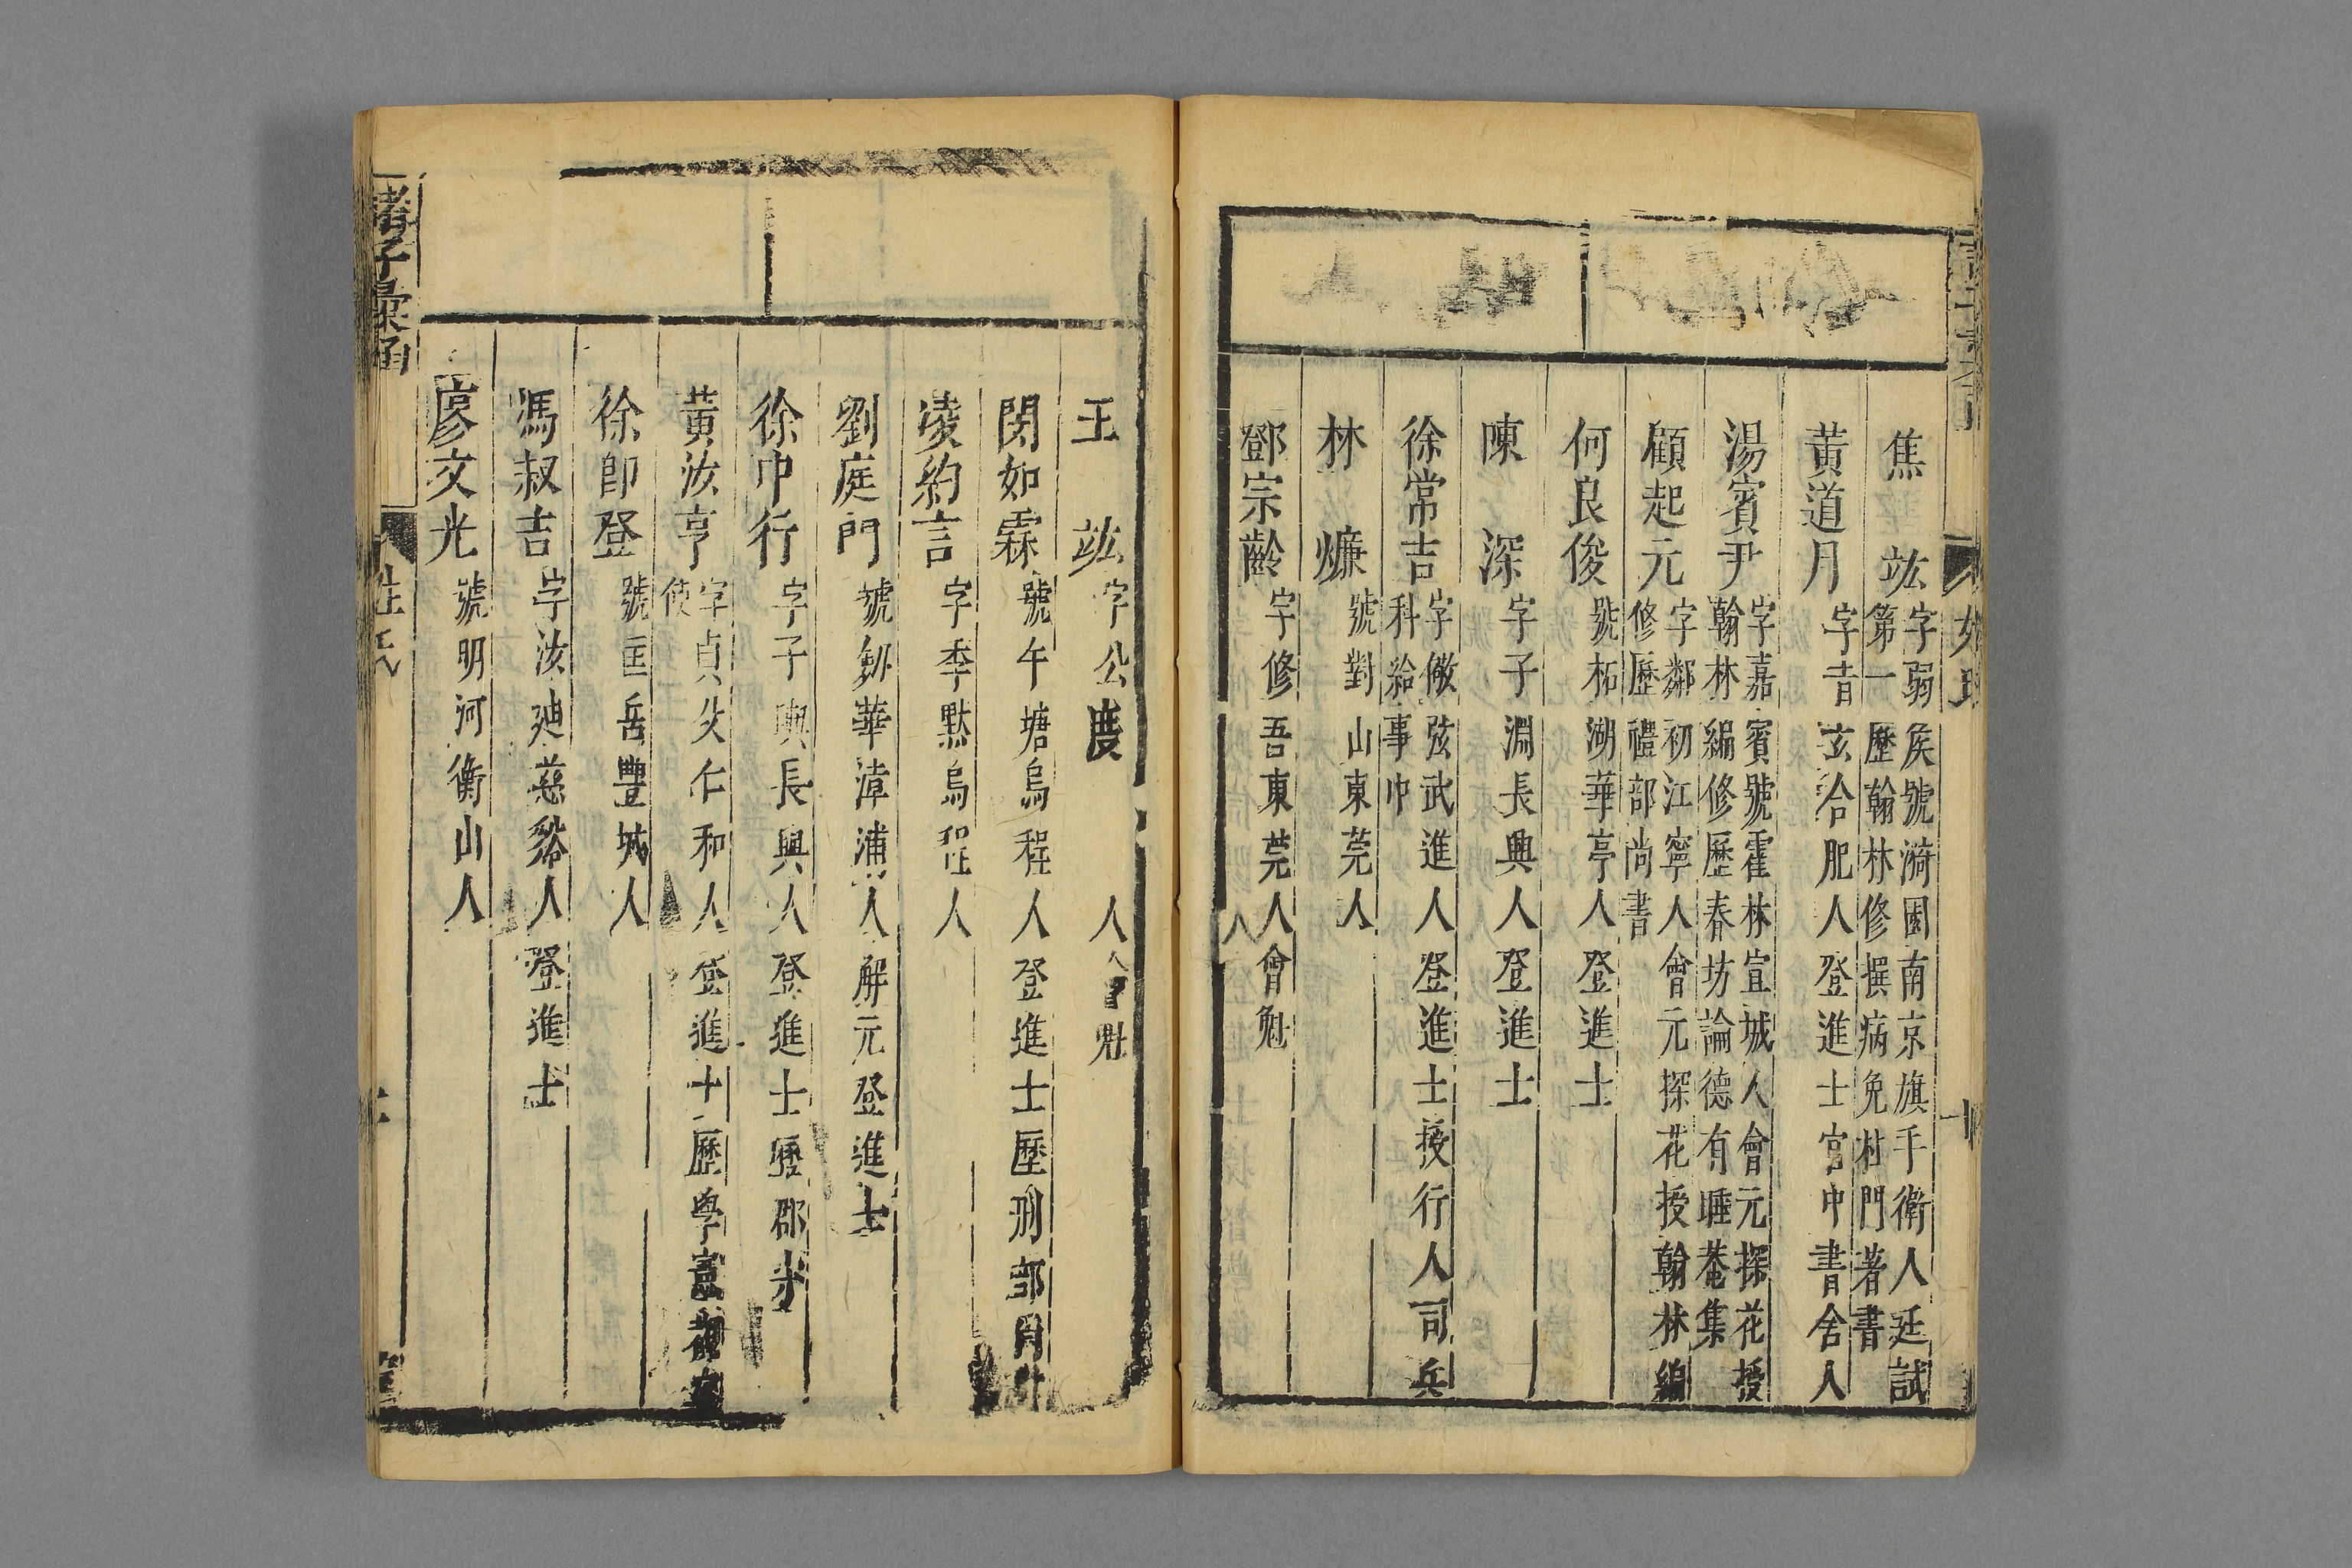 焦竑 字弱侯號漪園南京旗手衛人廷試
第一歷翰林修撰病免杜門著書
黃道月 字靑玄合肥人登進士官中書舍人
湯賓尹 字嘉賓號霍林宣城人會元探花授
翰林編修歷春坊論德有睡菴集
顧起元 字鄰初江寧人會元探花授翰林編
修歷禮部尚書
何良俊 號柘湖華亭人登進士
陳深 字子淵長興人登進士
徐常吉 字儆弦武進人登進士授行人司兵
科給事中
林爊 號對山東莞人
鄧宗齡 字修吾東莞人會魁
八
王竑 字公度 人會魁
閔如霖 號午塘烏程人登進士歷刑部
凌約言 字季默烏程人
劉庭門 號 華漳浦人解元登進士
徐中行 字子輿長興人登進士歷郡
黃汝亨 字貞父仁和人登進士歷學
使
徐即登 號匡岳豐城人
馮叔吉 字汝迪慈谿人登進士
廖文光 號明河衡山人
諸子彙函
姓氏